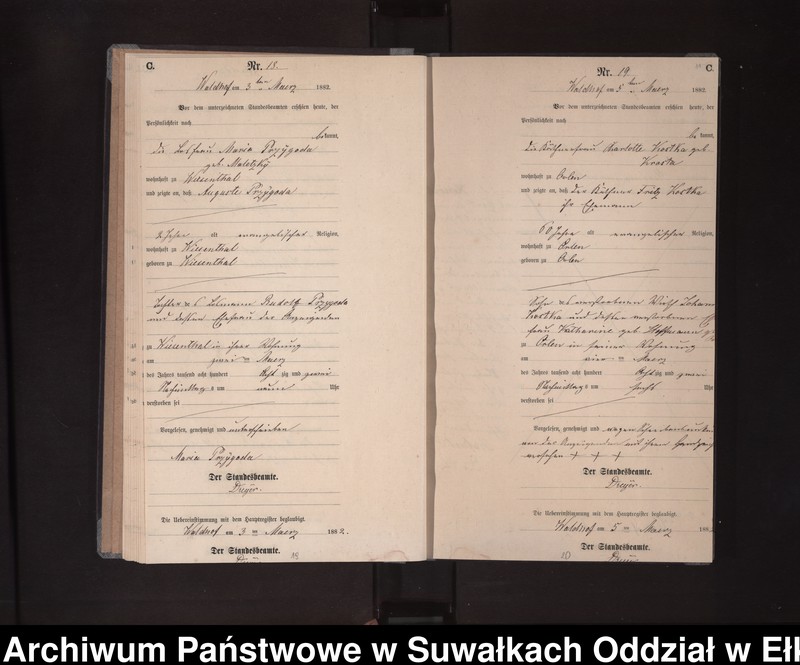 C. Nr. 18.
Waldhof am 3 ten Maerz 1882.
Vor dem unterzeichneten Standesbeamten erschien heute, der
Persönlichkeit nach
bekannt,
die Losfrau Maria Przygoda
geb. Malotzky
wohnhaft zu Wiesenthal
und zeigte an, daß Auguste Przygoda
2 Jahre alt evangelischer Religion,
wohnhaft zu Wiesenthal
geboren zu Wiesenthal
Tochter des Losmann Rudolf Przygoda
und dessen Ehefrau der Anzeigenden
zu Wiesenthal in ihrer Wohnung
am zwei ten Maerz
des Jahres tausend acht hundert achtzig und zwei
Nachmittags um neun Uhr
verstorben sei
Vorgelesen, genehmigt und unterschrieben
Maria Przygoda
Der Standesbeamte.
Dreyer.
Die Uebereinstimmung mit dem Hauptregister beglaubigt.
Waldhof am 3 ten Maerz 1882.
Der Standesbeamte.
18
Nr. 19. C.
Waldhof am 5 ten Maerz 1882.
Vor dem unterzeichneten Standesbeamten erschien heute, der
Persönlichkeit nach
bekannt,
die Käthnerfrau Charlotte Kostka geb
wohnhaft zu Orlen
und zeigte an, daß der Käthner Fritz Kostka
ihr Ehemann
60 Jahre alt evangelischer Religion,
wohnhaft zu Orlen
geboren zu Orlen
Sohn des verstorbenen Wirth Johann
Kostka und dessen verstorbenen Ehe
frau Katharine geb Hoffmann
zu Orlen in seiner Wohnung
am vier ten Maerz
des Jahres tausend acht hundert achtzig und zwei
Nachmittags um sechs Uhr
verstorben sei
Vorgelesen, genehmigt und wegen Schreibensunkun
von der Anzeigenden mit ihrem Handzeich
versehen + + +
Der Standesbeamte.
Dreyer.
Die Uebereinstimmung mit dem Hauptregister beglaubigt.
Waldhof am 5 ten Maerz 188
Der Standesbeamte.
Dreyer
Archiwum Państwowe w Suwałkach Oddział w Ełk